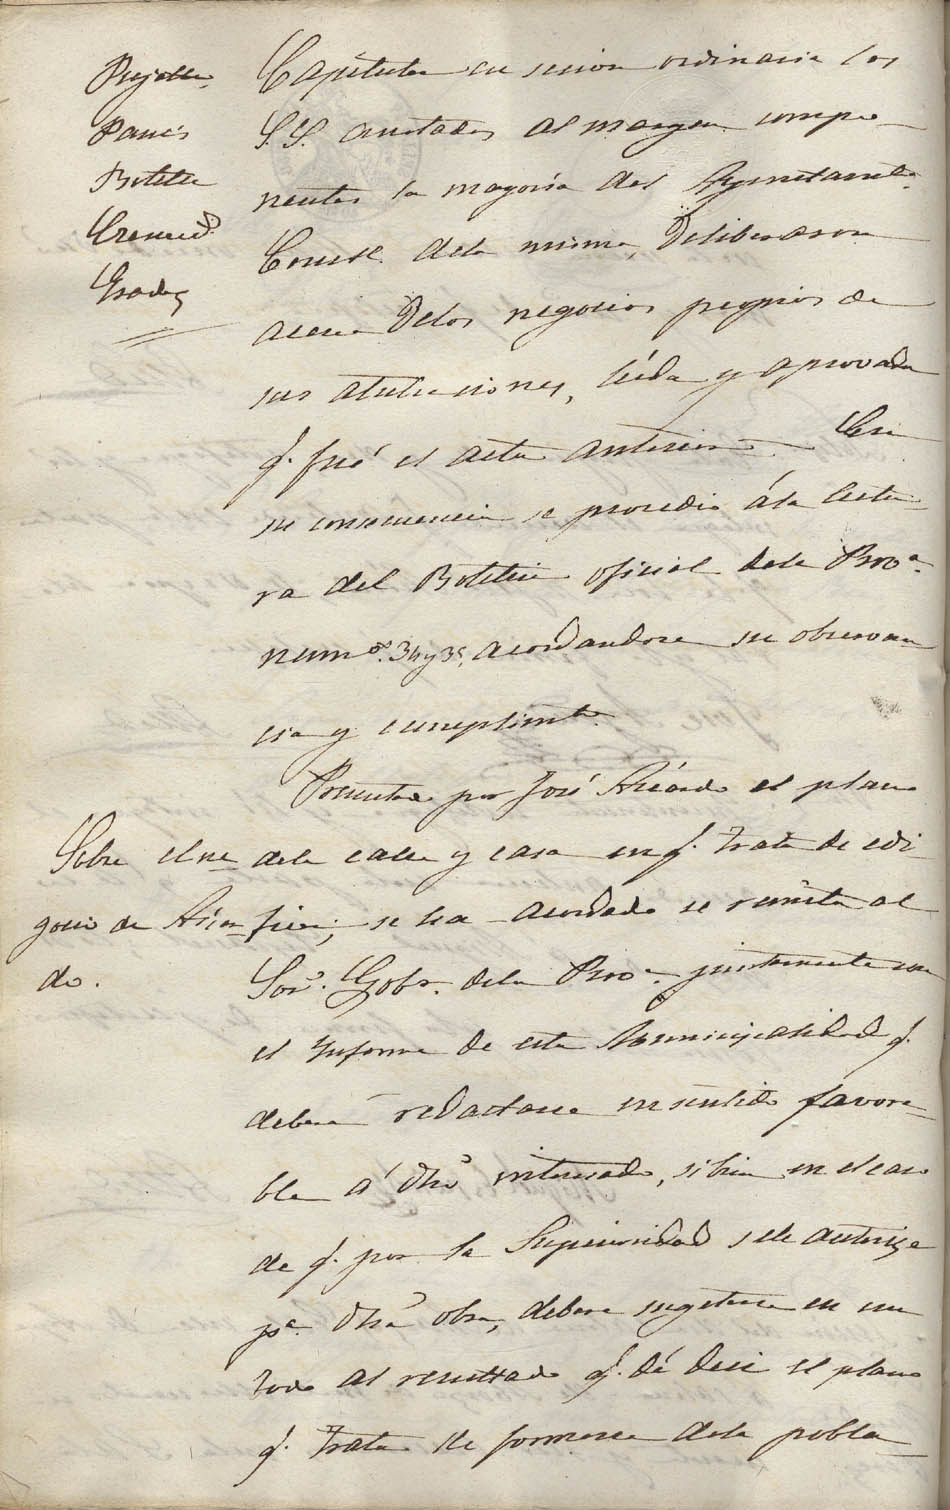 Panés
Botella
Gradoz
Capitular en sesion ordinaria los
S.S. anotados al margen compo-
nentes la mayoría del Ayuntamto.
Const. dela misma, Deliberaron
acerca Delos negocios propios de
sus atribuciones, leída y aprovada
q. fué el acta anterior. En
su consecuencia se procedio á la lectu-
ra del Boletin oficial dela Prova.
numos. 34 y 35, acordandose su observan
cia y cumplimto.
Presentado por José Aricardo el plano
Sobre el ne-
gocio de Aricar-
do.
dela calle y casa en q. trata de edi-
ficar, se ha acordado se remita al
Sor. Gobr. dela Proa. juntamente con
el Informe de esta Municipalidad q.
debera redactarse en sentido favora-
ble á dho interesado, si bien en el caso
de q. por la Superioridad se le autorize
pa. dha obra, debera sugetarse en un
todo al resultado q. dé desi el plano
q. trata de formarse dela pobla-